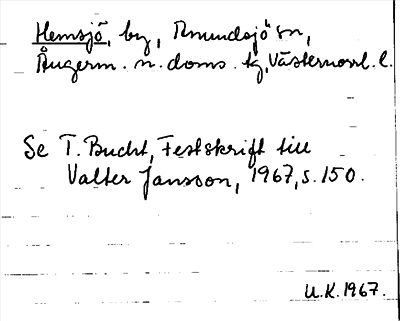 Hemsjö, by, Amundsjö sn,
Ångerm. n. doms. tg, Västernorrl. l.
Se T. Bucht, Festskrift till
Valter Jansson, 1967, s. 150.
U.K. 1967.